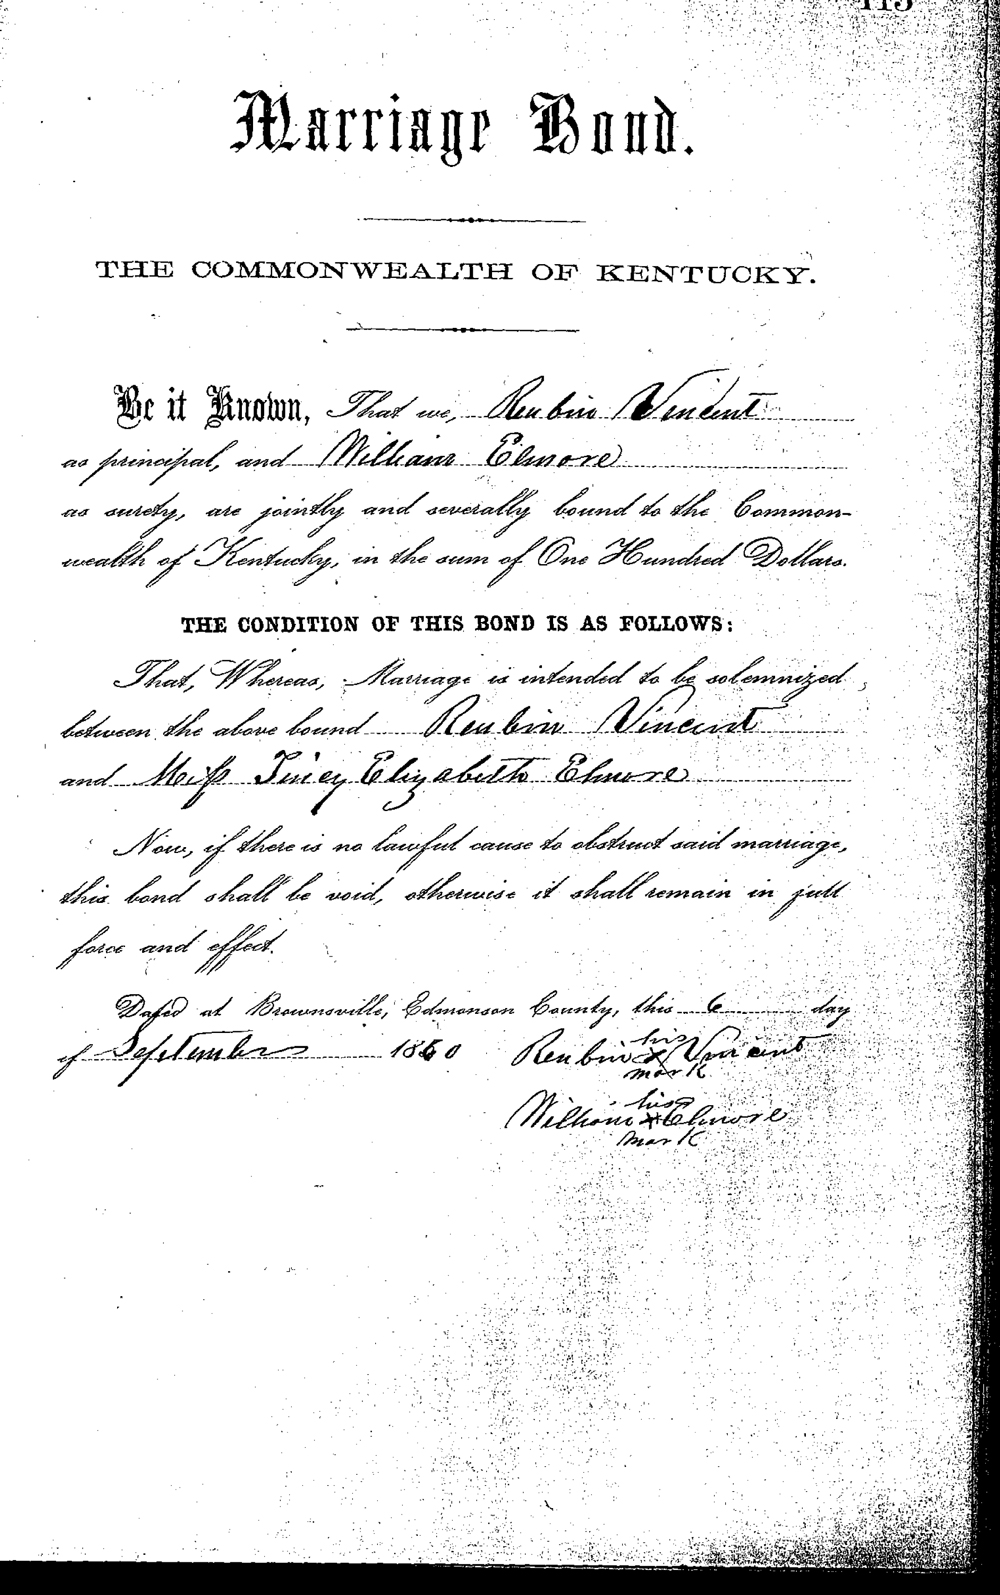 Marriage Bond.
THE COMMONWEALTH OF KENTUCKY.
Be it Known, That we, Reubin Vincent
as principal, and William Elmore
as surety, are jointly and severally bound to the Common-
wealth of Kentucky, in the sum of One Hundred Dollars.
THE CONDITION OF THIS BOND IS AS FOLLOWS:
That, Whereas, Marriage is intended to be solemnized
between the above bound Reubin Vincent
and Miss Elizabeth Elmore
Now, if there is no lawful cause to obstruct said marriage,
this bond shall be void, otherwise it shall remain in full
force and effect.
Dated at Brownsville, Edmonson County, this 6 day
of September 1860
his
Reubin x Vincent
mark
his
William x Elmore
mark